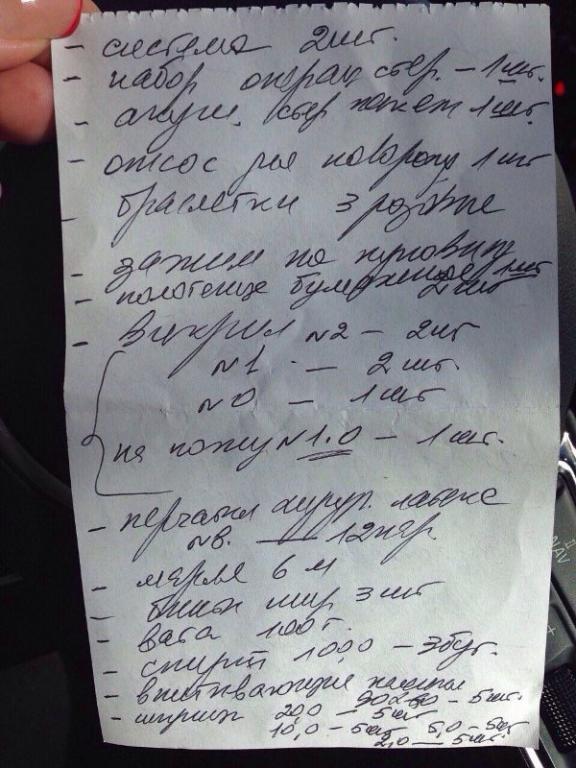 - система 2 шт.
- набор операц стер. - 1 шт.
- акуш. стер пакет 1 шт.
- отсос для новорожд 1 шт
- браслетки
- зажим на пуповину 1 шт
- полотенце бумажное 2 шт
- Викрил N2 - 2 шт
N1 - 2 шт.
N0 - 1 шт
на кожу N 1.0 - 1 шт.
- перчатки хирур. латекс
N8. — 12 пар.
- марля 6 м
- бинт шир 3 шт
- вата 100 г.
- спирт 100,0 - 3 бут.
- впитывающие пеленки
- шприц 20,0 - 5 шт
10,0 - 5 шт 5,0 - 5 шт
2,0 — 5 шт.